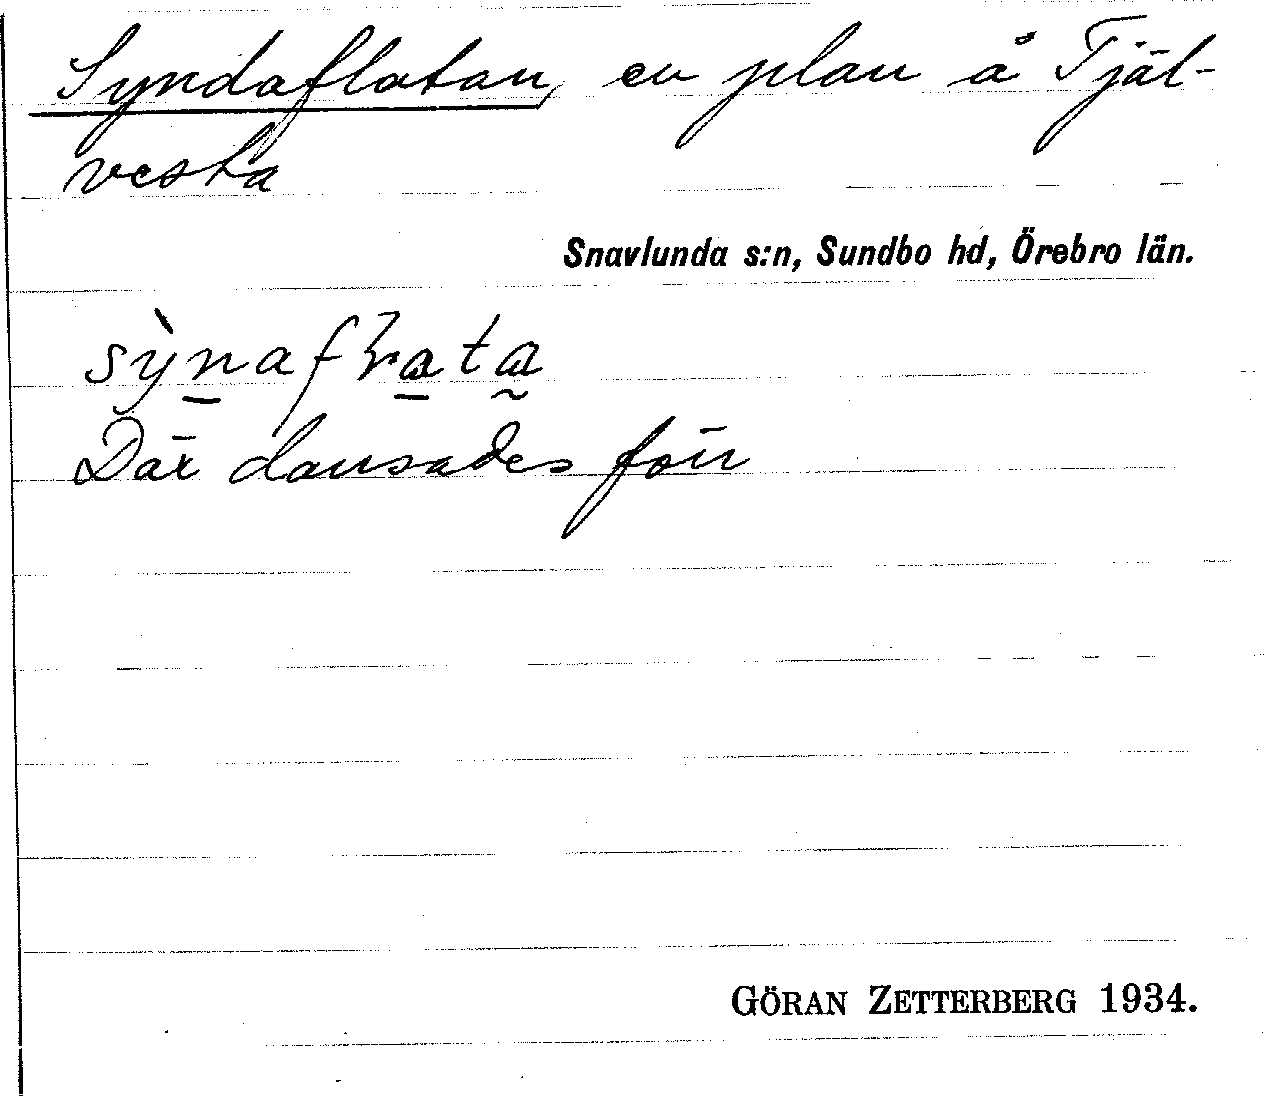 Syndaflatan, en plan å Tjäl-
vesta
Snavlunda s:n, Sundbo hd, Örebro län.
Där dansades förr
GÖRAN ZETTERBERG 1934.